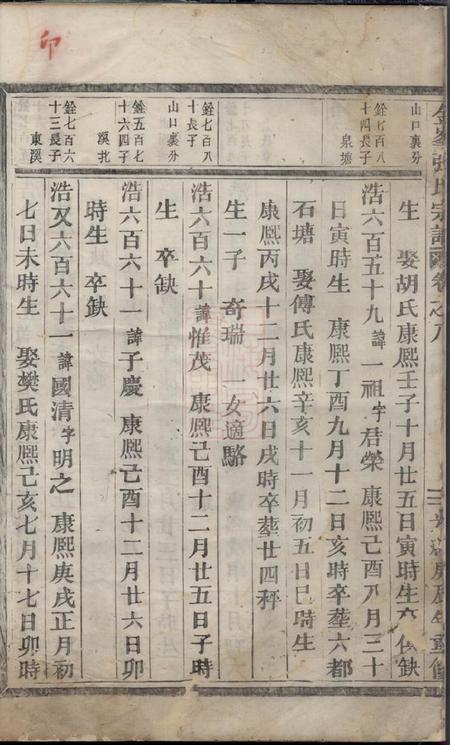 印
金峯張氏宗譜 卷之八
山口裏分
生 娶胡氏康熙壬子十月廿五日寅時生 卒缺
銓七百八
十四長子
泉塘
浩六百五十九諱一祖字君榮 康熙己酉八月三十
日寅時生 康熙丁酉九月十二日亥時卒葬六都
石塘 娶傅氏康熙辛亥十一月初五日巳時生
康熙丙戌十二月廿六日戌時卒葬廿四秤
山口裏分
生一子 奇瑞 一女適駱
銓七百八
十長子
浩六百六十諱惟茂 康熙己酉十二月廿五日子時
生 卒缺
銓五百七
十六四子
溪北
浩六百六十一諱子慶 康熙己酉十二月廿六日卯
時生 卒缺
銓七百六
十三長子
東溪
浩又六百六十一諱國清字明之 康熙庚戌正月初
七日未時生 娶樊氏康熙己亥七月十七日卯時